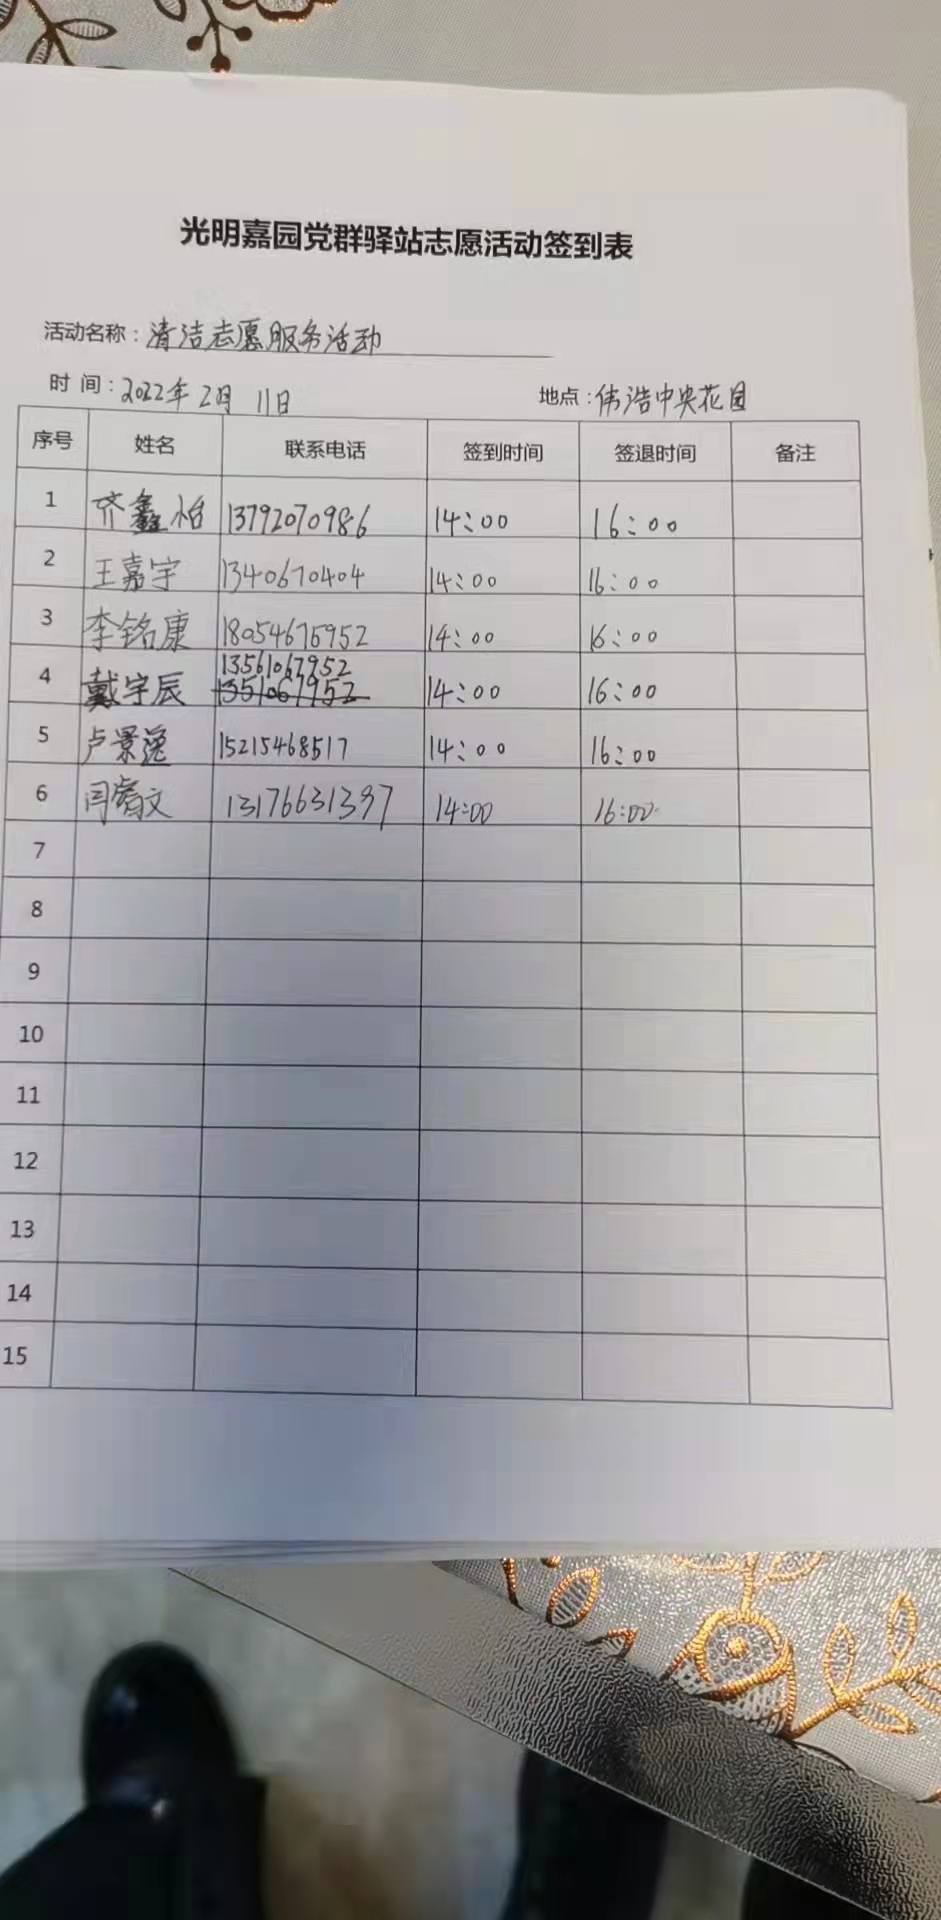 光明嘉园党群驿站志愿活动签到表
活动名称：清洁志愿服务活动
时 间：2022年 2月 11日 地点：伟浩中央花园
序号 姓名 联系电话 签到时间 签退时间 备注
1 齐鑫怡 13792070986 14:00 16:00
2 王嘉宇 1340670404 14:00 16:00
3 李铭康 18054675952 14:00 16:00
13561067952
4 戴宇辰 1351067952 14:00 16:00
5 卢景逸 15215468517 14:00 16:00
6 闫睿文 13176631397 14:00 16:00
7
8
9
10
11
12
13
14
15